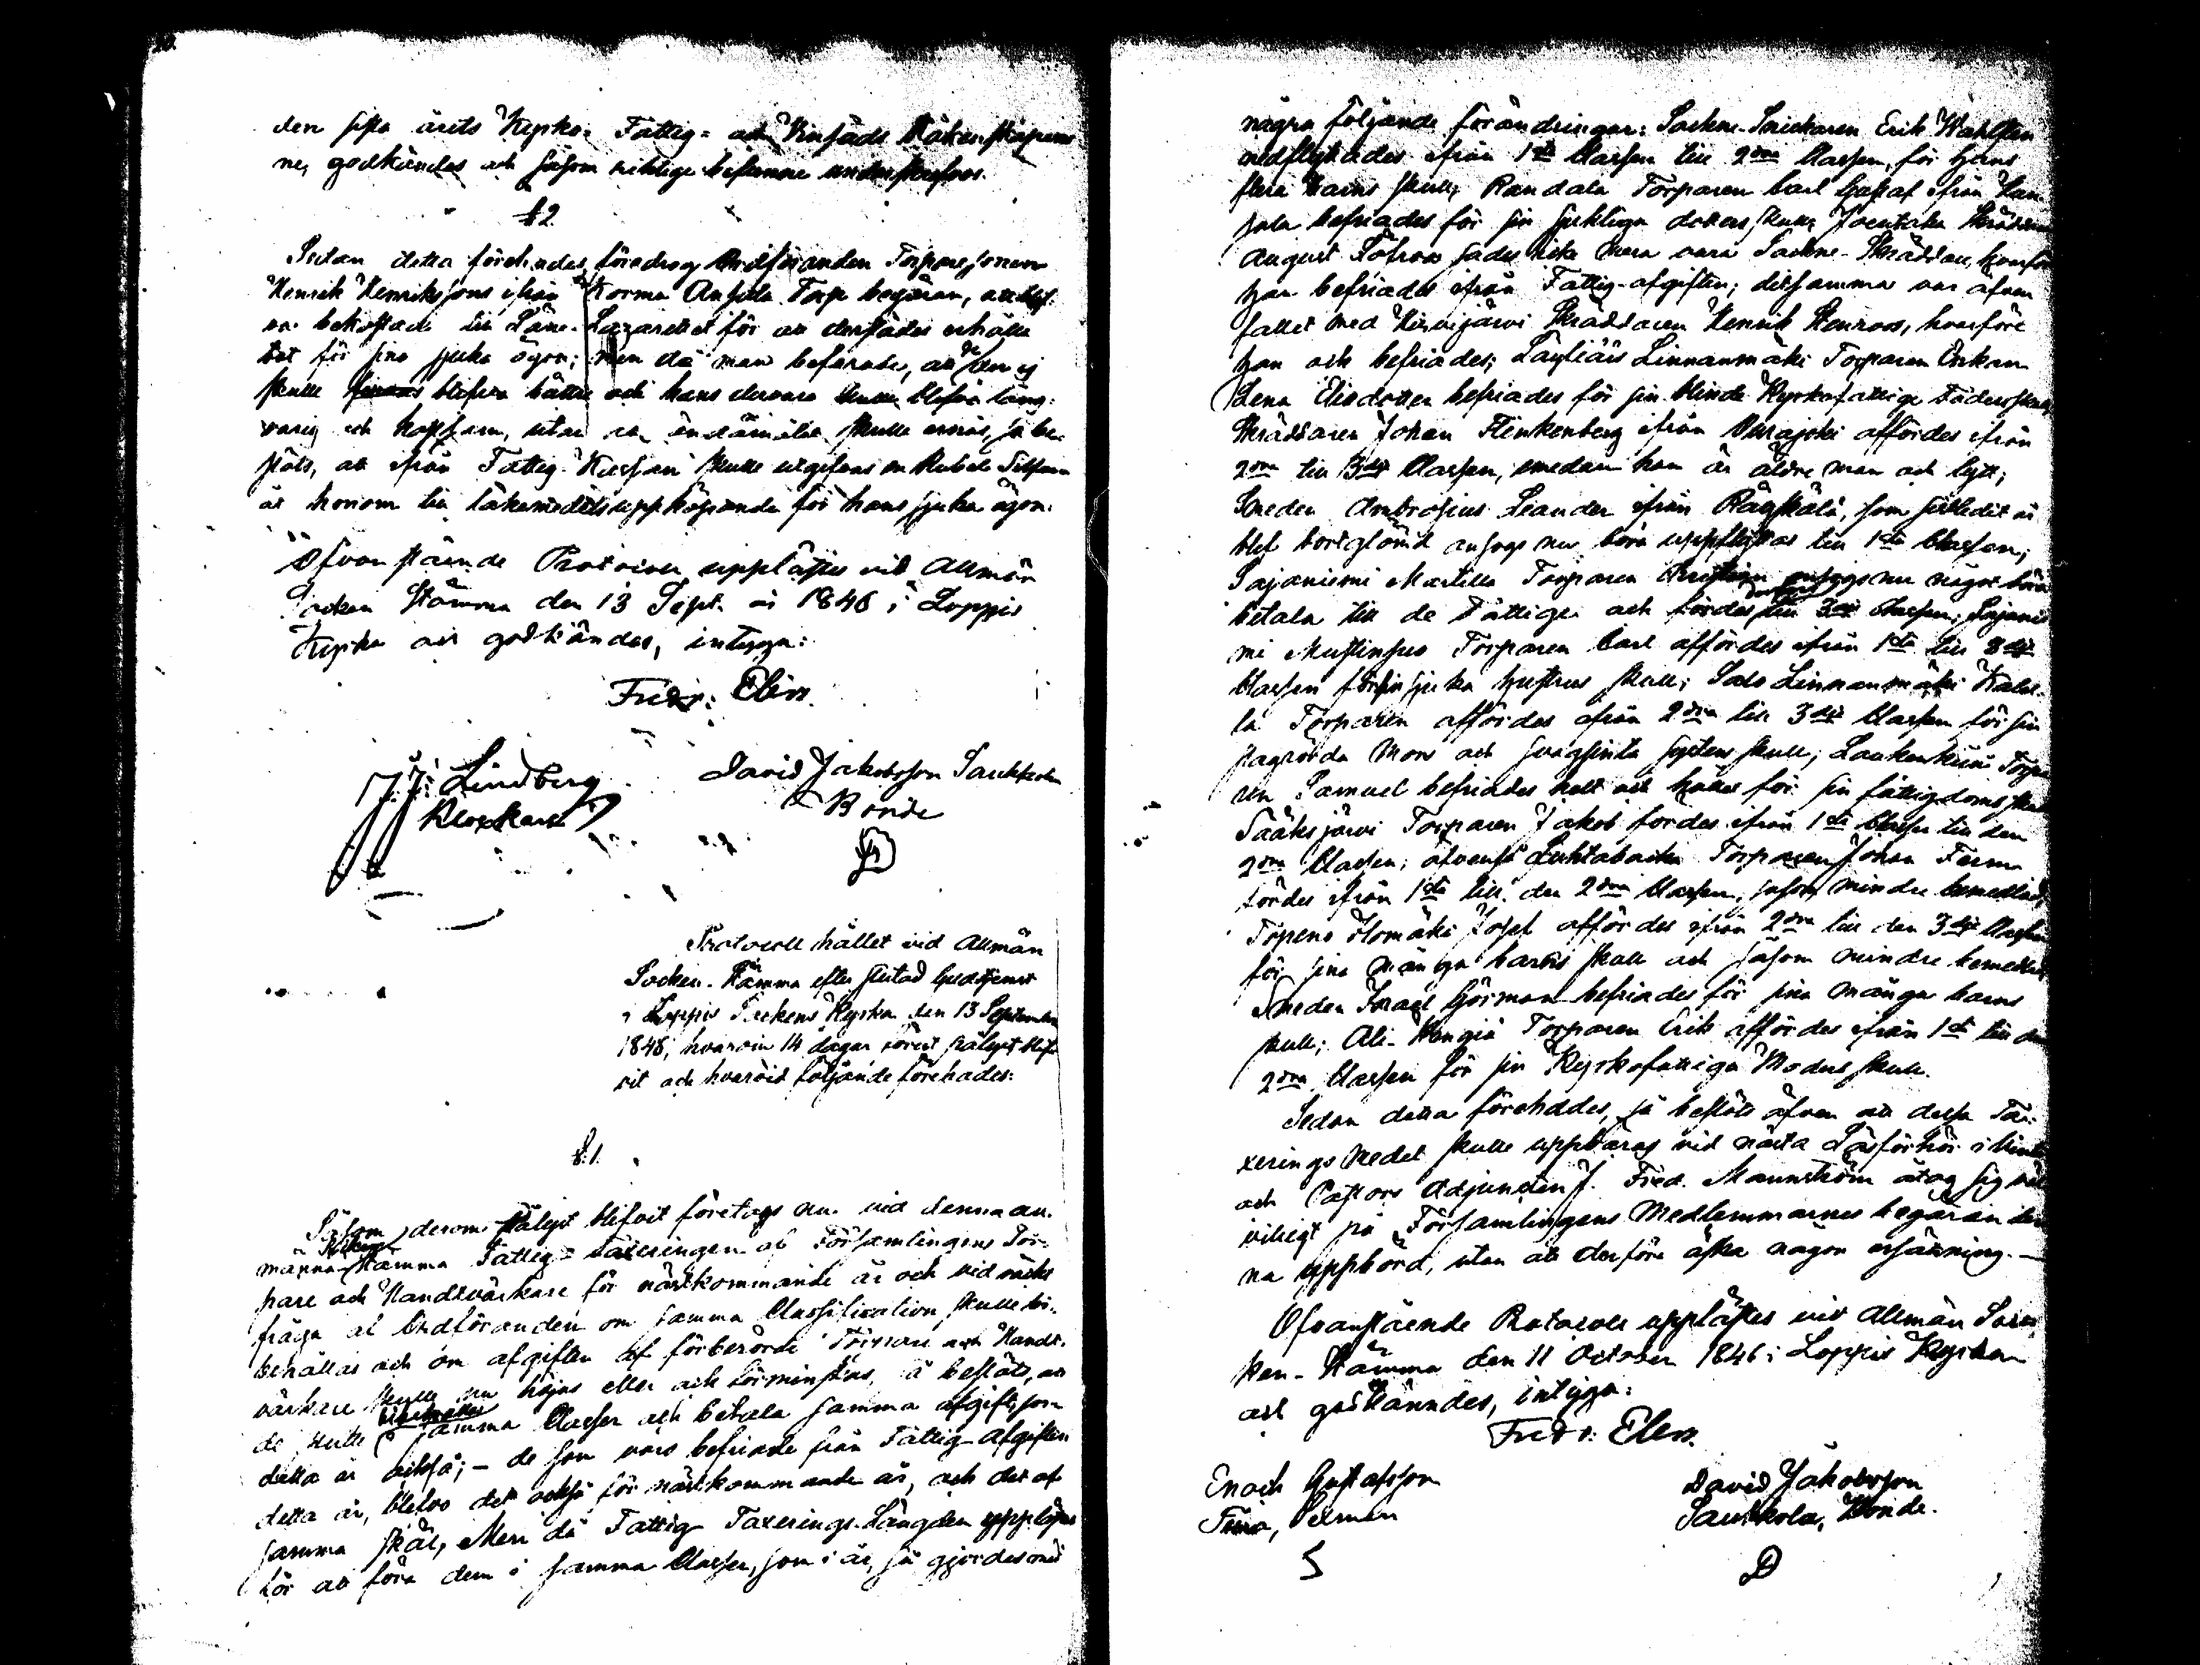 den sista årets Kyrko- Fattig- och Kinfads Räkenskaper
ne, godkändes och såsom riktige befunne underskrefvos.
§ 2.
Sedan detta förehades, föredrog Ordföranden Torparesonen
Henrik Henrikssons ifrån Kormu Anssila Torp begäran, att blif
va bekostad till Läne-Lazarettet för att derstädes erhålla
bot för sina sjuka ögon; men då man befarade, att de ej
skulle blifva bättre och hans dervaro skulle blifva lång-
varig och kostsam, utan att ändamålet skulle ernås, så be-
slöts, att ifrån Fattig-Kassan skulle utgifvas en Rubel Silfver
åt honom till läkemedels uppköpande för hans sjuka ögon.
Ofvanstående Protocoll upplästes vid Allmän
Socken Stämma den 13 Sept. år 1846 i Loppis
Kyrka och godkändes, intyga:
Fredr: Elers.
J. J. Lindberg
Klockare
David Jakobsson Saukkola
Bonde
Protocoll hållet vid Allmän
Socken-Stämma efter slutad Gudstjenst
i Loppis Sockens Kyrka den 13 September
1846, hvarom 14 dagar förut pålyst blif-
vit och hvarvid följande förehades:
§. 1.
Såsom derom pålyst blifvit företogs nu vid denna all-
männa Sockne Stämma Fattig-Taxeringen af Församlingens Tor-
pare och Handtvärkare för nästkommande år och vid
fråga af Ordföranden om samma Classification skulle bi-
behållas och om afgiften af förberörde Torpare och Handt-
värkare skulle nu höjas eller och förminskas, så beslöts, att
de skulle bibehållas samma Classer och betala samma afgift, som
detta år också; - de som voro befriade från Fattig-afgiften
detta år, blefvo det också för nästkommande år, och det af
samma skäl, Men då Fattig-Taxerings-Längden upplästes
för att föra dem i samma Classer, som i år, så gjordes med
några följande förändringar: Sockne-Snickaren Erik Wahlsten
nedflyttades ifrån 1sta Classen till 2dra Classen, för hans
flera barns skull, Randala Torparen Carl Gustaf ifrån
befriades för sin sjukliga dotters skull, Joentaka Skräddaren
August Tötros sades icke mera vara Sockne-Skräddare, hvarföre
han befriades ifrån Fattig-afgiften; detsamma var äfven
fallet med Hirvijärvi Skräddaren Henrik Stenroos, hvarföre
han och befriades; Läyliäis Linnanmäki Torparen Enkan
Lena Eliedotter befriades för sin blinde Kyrkofattige Faders skull,
Skräddaren Johan Flinkenberg ifrån affördes ifrån
2dra till 3dje Classen, emedan han är äldre man och lytt;
Smeden Ambrosius Leander ifrån Räyskälä, som sistledit år
blef bortglömd ansågs nu böra uppflyttas till 1sta Classen;
Sajaniemi Martilla Torparen Christian ansågs nu något böra
betala till de Fattige och fördes derföre till 3dje Classen; Sajanie
mi Torparen Carl affördes ifrån 1sta till 3dje
Classen för sin sjuka hustrus skull; Salo Linnanmäki
la Torparen affördes ifrån 2dra till 3dje Classen för sin
slagrörda Mors och svagsinta systers skull; Torpa
ren Samuel befriades helt och hållet för sin fattigdoms skull
Sääksjärvi Torparen Jakob fördes ifrån 1sta Classen till den
2dra Classen; äfvenså Luhtabacka Torparen Johan
fördes ifrån 1sta till den 2dra Classen, såsom mindre bemedlad,
Topeno Josef affördes ifrån 2dra till den 3dje Classen
för sina många barns skull och såsom mindre bemedlad,
Smeden Israel Görman befriades för sina många barns
skull; Ali-Hengiä Torparen Erik affördes ifrån 1sta till den
2dra Classen för sin Kyrkofattiga Moders skull.
Sedan detta förehades, så beslöts äfven att dessa Ta-
xerings Medel skulle uppbäras vid nästa Läsförhör i
och Pastors Adjuncten J. Fred. Mannström åtog sig
villigt på Församlingens Medlemmarnes begäran den
na uppbörd, utan att derföre äska någon ersättning. —
Ofvanstående Protocoll upplästes vid Allmän Soc-
ken-Stämma den 11 October 1846 i Loppis Kyrka
och godkändes, intyga:
Fredr: Elers.
Enoch Gustafsson
David Jakobsson
Saukkola, Bonde.